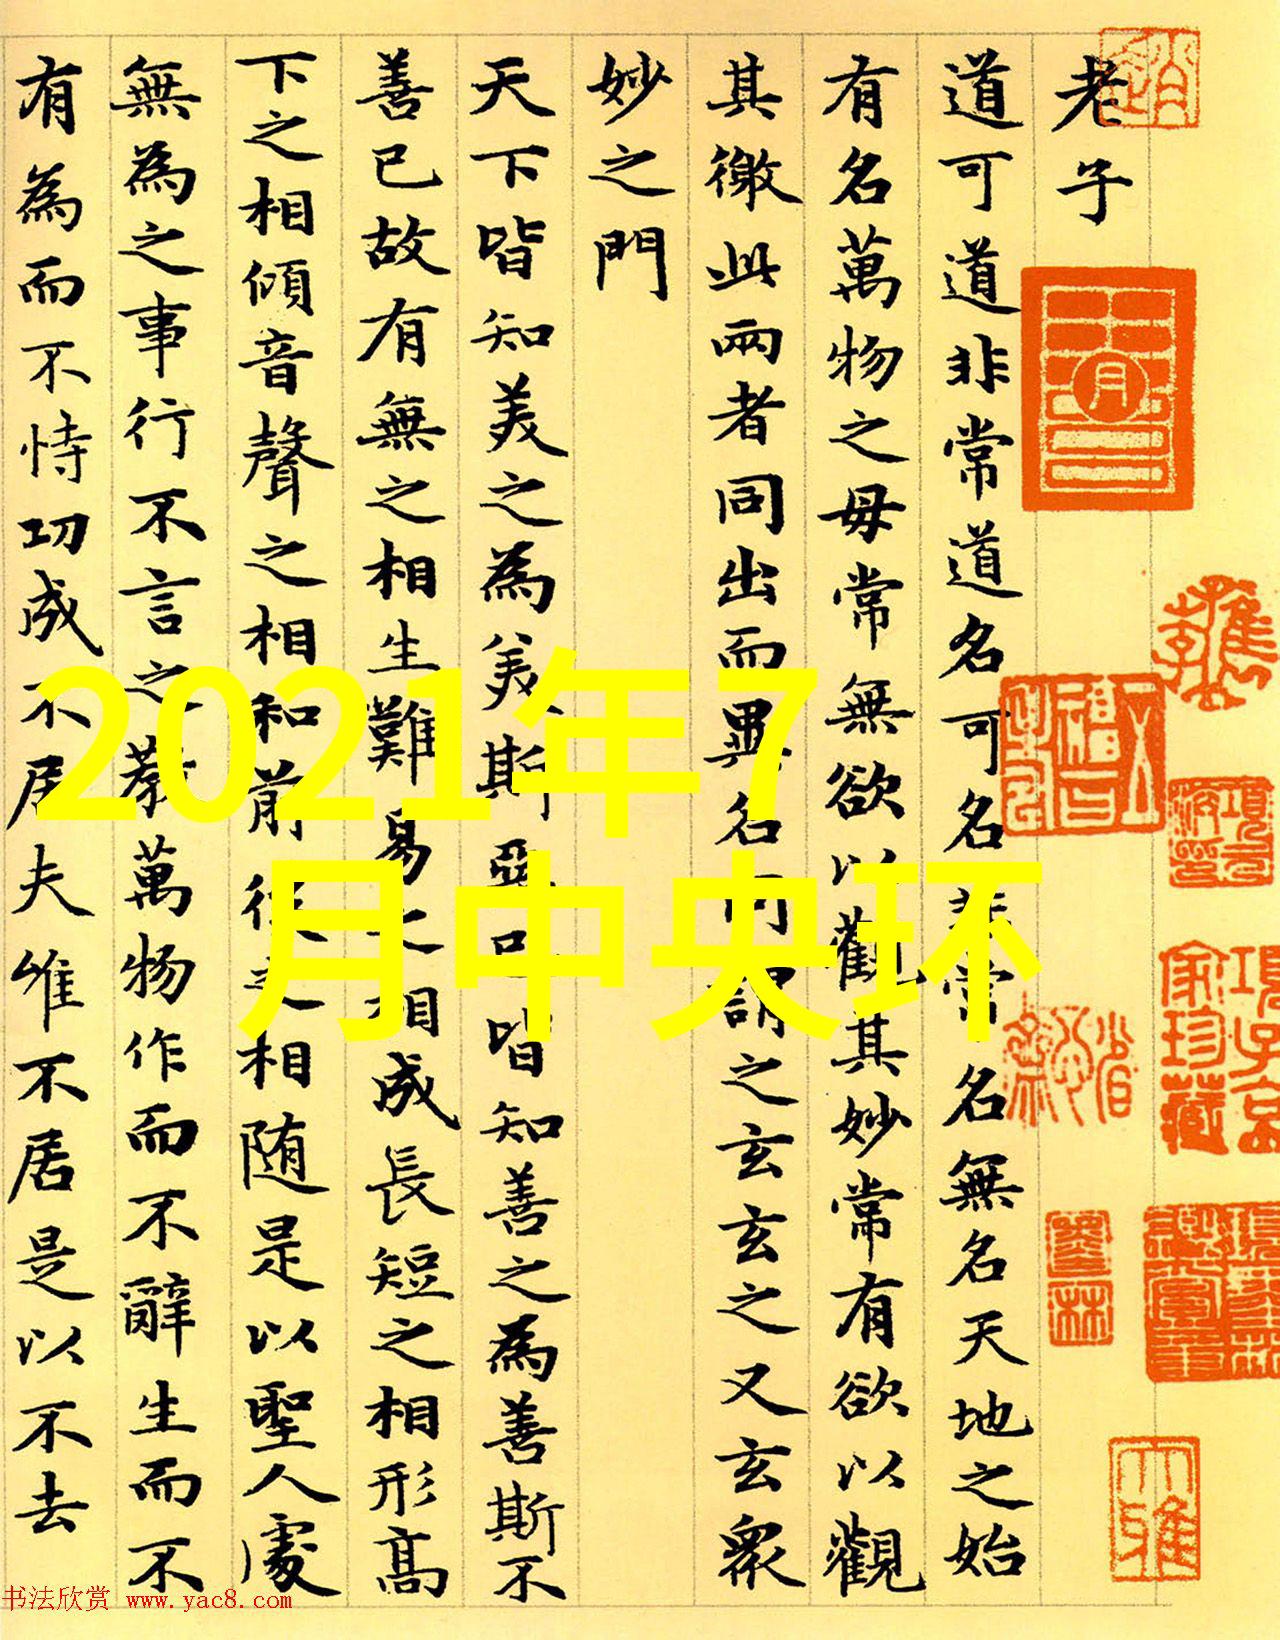 老子
道可道非常道名可名非常名無名天地之始
有名萬物之母常無欲以觀其妙常有欲以觀
其徼此兩者同出而異名同謂之玄玄之又玄衆
妙之門
天下皆知美之為美斯惡已皆知善之為善斯不
善已故有無之相生難易之相成長短之相形高
下之相傾音聲之相和前後之相隨是以聖人處
無為之事行不言之教萬物作而不辭生而不
有為而不恃功成不居夫唯不居是以不去
2021年7
月中央环
书法欣赏 www.yac8.com